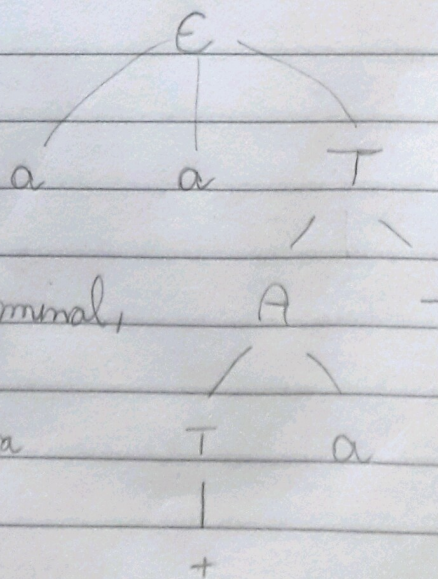 E
a a T
minal, A -
a T a
+